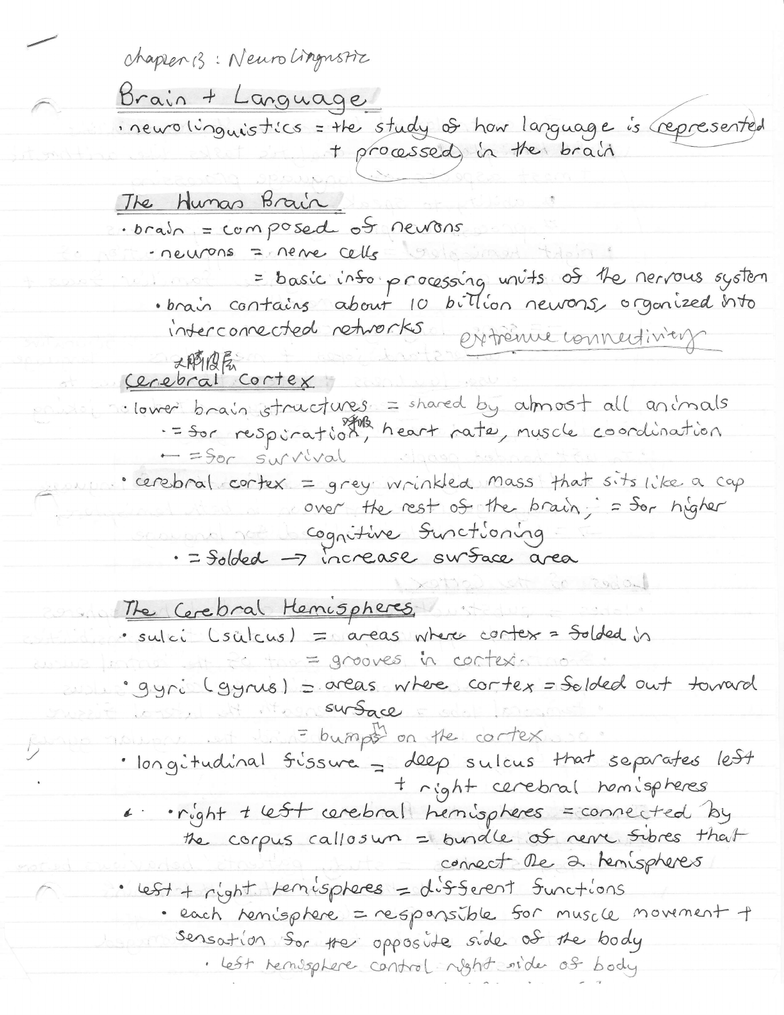 chapter 13 : Neurolingustic
Brain + Language
· neurolinguistics = the study of how language is represented
+ processed in the brain
The Human Brain
· brain = composed of neurons
· neurons = nerve cells
= basic info processing units of the nervous system
· brain contains about 10 billion neurons, organized into
interconnected networks
extreme connectivity
大脑皮层
Cerebral Cortex
· lower brain structures = shared by almost all animals
呼吸
· = for respiration, heart rate, muscle coordination
← = for survival
· cerebral cortex = grey wrinkled mass that sits like a cap
over the rest of the brain, = for higher
cognitive functioning
· = folded → increase surface area
The Cerebral Hemispheres
· sulci (sulcus) = areas where cortex = folded in
= grooves in cortex
· gyri (gyrus) = areas where cortex = folded out toward
surface
= bumps on the cortex
· longitudinal fissure = deep sulcus that separates left
+ right cerebral hemispheres
· right + left cerebral hemispheres = connected by
the corpus callosum = bundle of nerve fibres that
connect the 2 hemispheres
· left + right hemispheres = different functions
· each hemisphere = responsible for muscle movement +
sensation for the opposite side of the body
· left hemisphere control right side of body